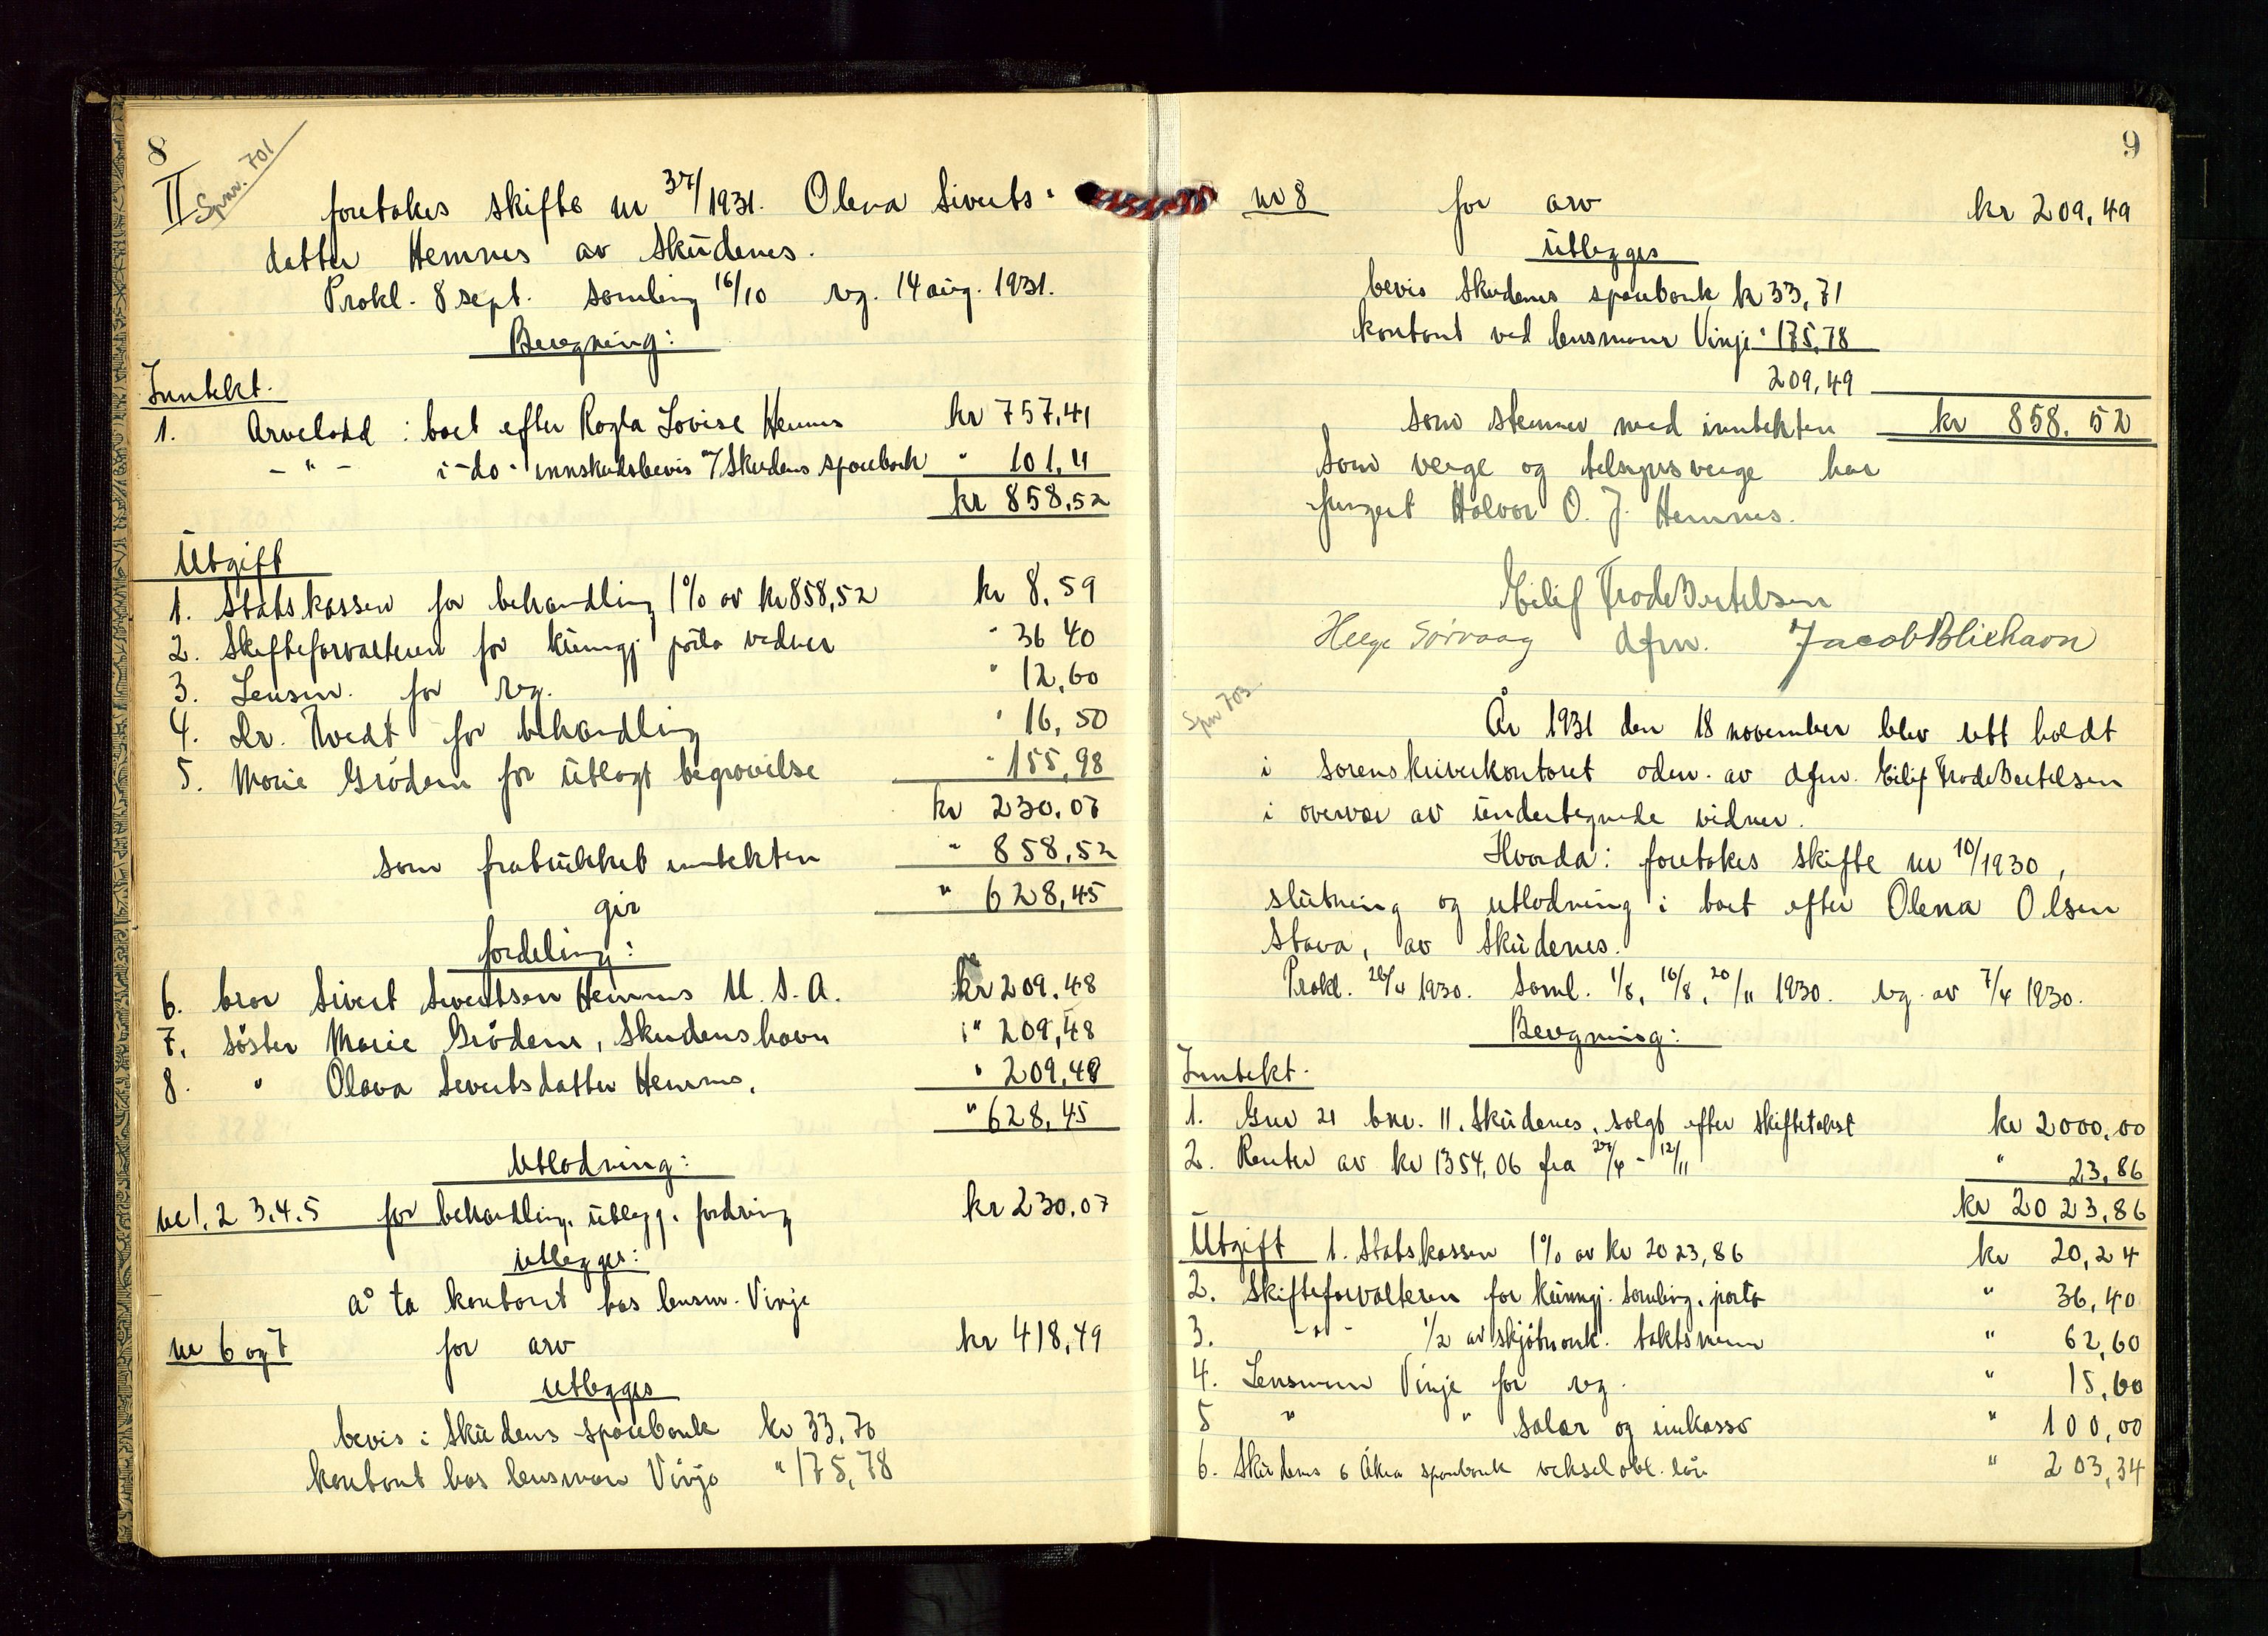 8
II
Spnr. 701
foretokes skifte nr 37/1931. Olena Siverts-
datter Hemnes av Skudenes.
Prokl. 8 sept. samling 16/10 rg. 14 aug. 1931.
Beregning:
Inntekt.
1. Arvelodd i boet efter Ragla Lovise Hemnes kr 757,41
- " - i -do- innskudsbevis Skudenes sparebank " 101,11
kr 858,52
Utgift
1. Statskassen for behandling 1% av kr 858,52 kr 8,59
2. Skifteforvalteren for kunngj porto vidner " 36 40
3. Lensm. for rg. " 12,60
4. Dr. Tvedt for behandling " 16,50
5. Marie Grødem for utlagt begravelse " 155,98
kr 230,07
som fratrukket inntekten " 858,52
gir " 628,45
fordeling:
6. bror Sivert Sivertsen Hemnes U.S.A. kr 209,48
7. søster Marie Grødem, Skudeneshavn " 209,48
8. " Olava Sivertsdatter Hemnes. " 209,48
" 628,45
Utlodning:
nr 1. 2 3. 4. 5 for behandling, utlegg, fordring kr 230,07
utlegges:
å ta kontant hos lensm. Vinje
nr 6 og 7 for arv kr 418,49
utlegges
bevis i Skudenes sparebank kr 33,70
kontant hos lensmann Vinje " 175,78
9
nr 8 for arv kr 209,49
utlegges
bevis Skudenes sparebank kr 33,71
kontant ved lensmann Vinje " 175,78
209,49
som stemmer med inntekten kr 858.52
Som verge og tilsynsverge har
fungert Halvor O. J. Hemnes.
Eilif Frode Bertelsen
Helge Sørvaag dfm. Jacob Bliehavn
Spnr 703
År 1931 den 18 november blev rett holdt
i sorenskriverkontoret adm. av dfm. Eilif Frode Bertelsen
i overvær av undertegnede vidner.
Hvorda: foretokes skifte nr 10/1930,
slutning og utlodning i boet efter Olena Olsen
Stava, av Skudenes.
Prokl. 26/4 1930. Saml. 1/8, 16/8, 20/11 1930. rg. av 7/4 1930.
Beregning:
Inntekt.
1. Gnr 21 bnr. 11. Skudenes, solgt efter skiftetakst kr 2000,00
2. Renter av kr 1354,06 fra 27/4 - 12/11 " 23,86
kr 2023,86
Utgift 1. Statskassen 1% av kr 2023,86 kr 20,24
2. Skifteforvalteren for kunngj. samling, porto " 36,40
3. - " - 1/2 av skjøtnonk. takstmenn " 62,60
4. Lensmann Vinje for rg. " 15,60
5 " " salær og inkasso " 100,00
6. Skudenes & Åkra sparebank veksel obl. lån " 203,34